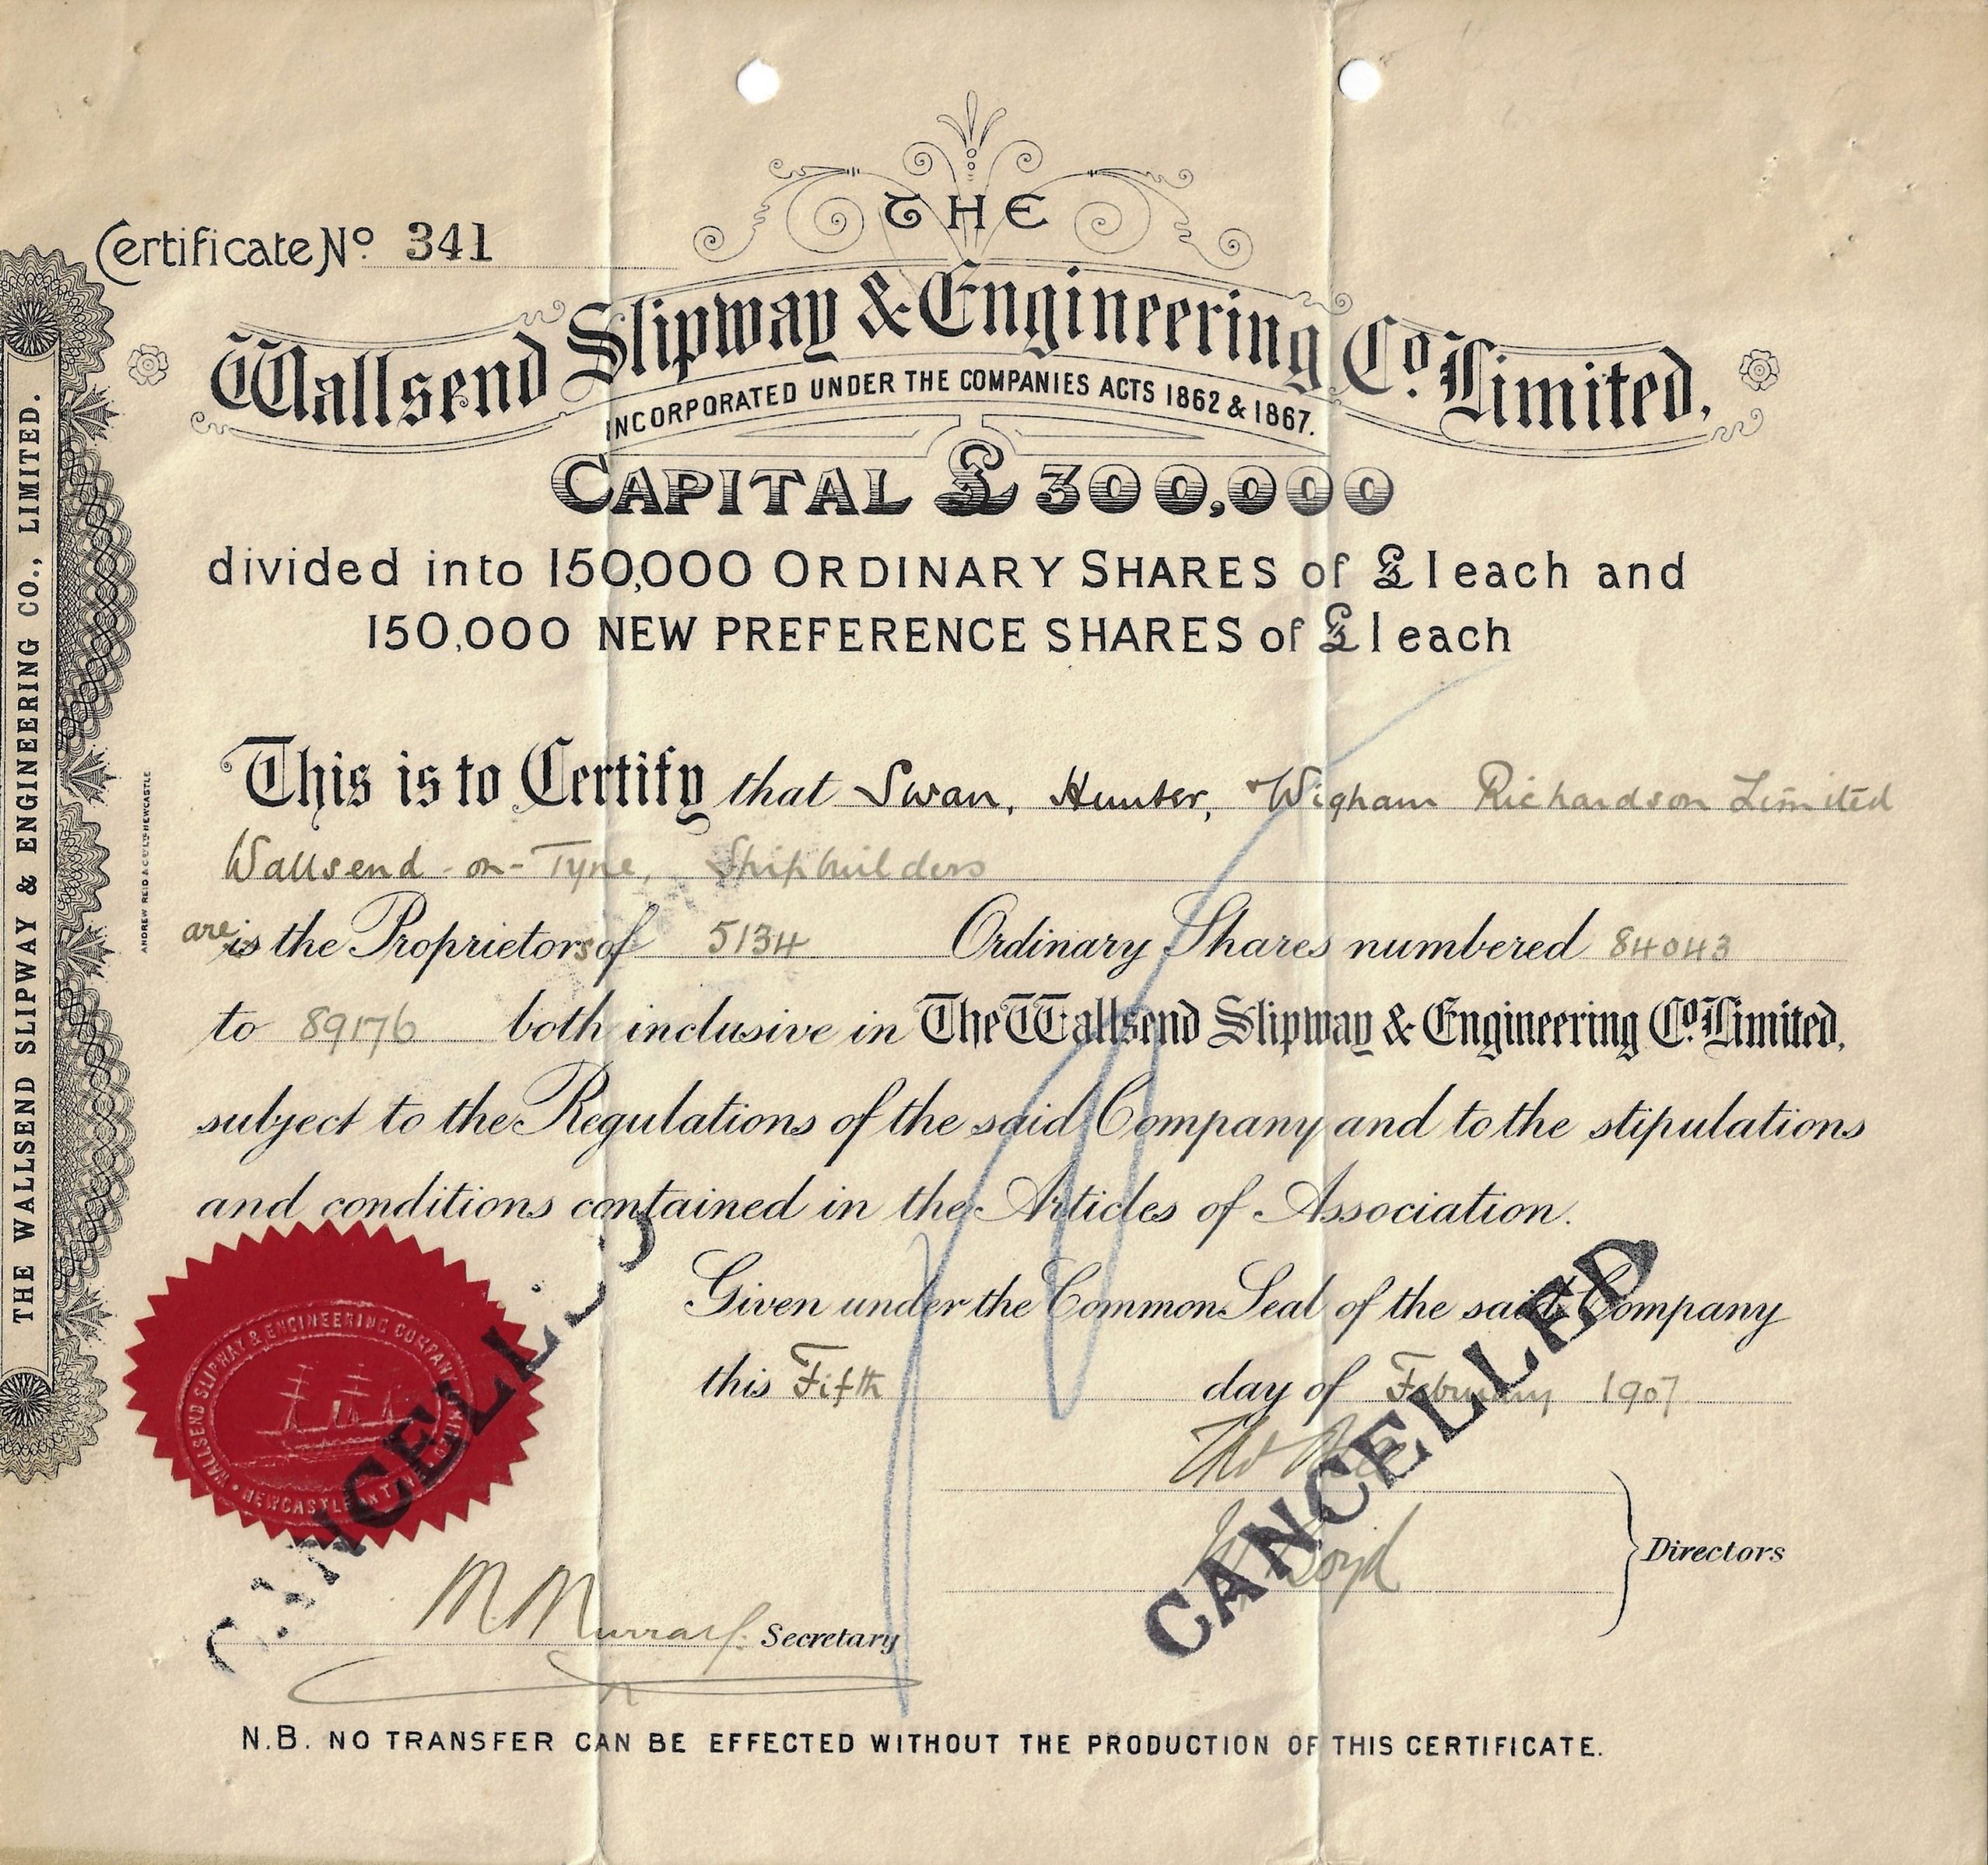 Certificate No. 341
THE
Wallsend Slipway & Engineering Co. Limited.
INCORPORATED UNDER THE COMPANIES ACTS 1862 & 1867.
CAPITAL £300,000
divided into 150,000 ORDINARY SHARES of £1 each and
150,000 NEW PREFERENCE SHARES of £1 each
This is to Certify that Swan, Hunter, & Wigham Richardson Limited
Wallsend-on-Tyne, Shipbuilders
are is the Proprietors of 5134 Ordinary Shares numbered 84043
to 89176 both inclusive in The Wallsend Slipway & Engineering Co. Limited,
subject to the Regulations of the said Company and to the stipulations
and conditions contained in the Articles of Association.
Given under the Common Seal of the said Company
this Fifth day of February 1907
Boyd
Directors
M. Murray. Secretary
N.B. NO TRANSFER CAN BE EFFECTED WITHOUT THE PRODUCTION OF THIS CERTIFICATE.
CANCELLED
CANCELLED
WALLSEND SLIPWAY & ENGINEERING COMPANY LIMITED
NEWCASTLE
THE WALLSEND SLIPWAY & ENGINEERING CO., LIMITED.
ANDREW REID & CO LD NEWCASTLE